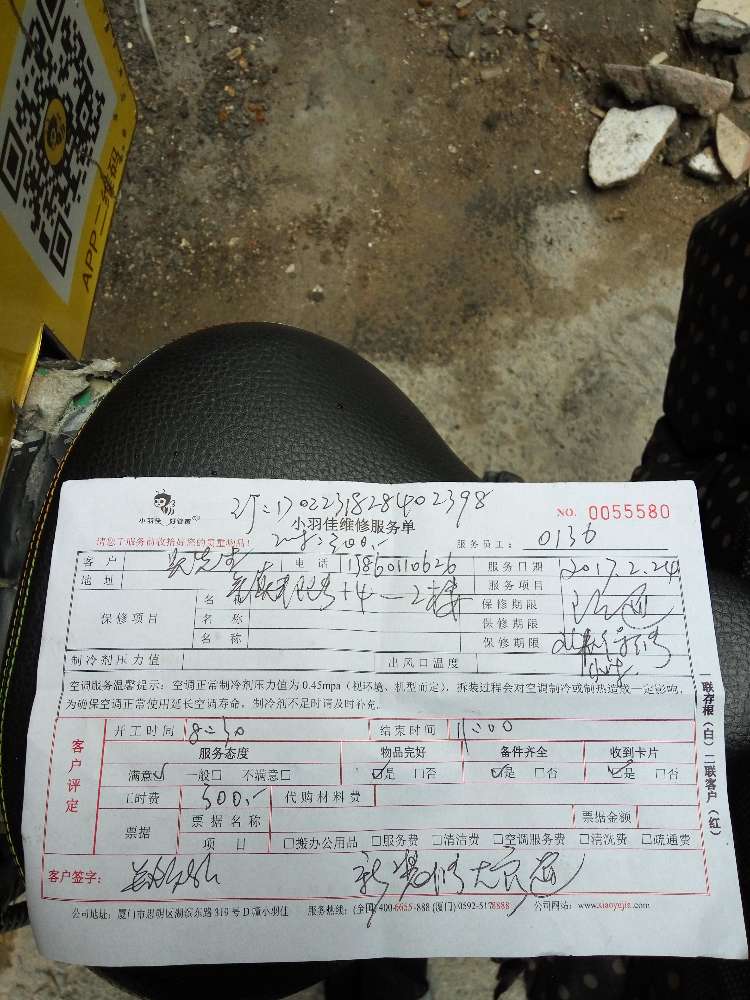 APP二维码
小羽佳 好管家
订:170223182840 2398
NO. 0055580
小羽佳维修服务单
请您于服务前收拾好您的贵重物品!
服务员工: 0136
客户 电话 15860110626 服务日期 2017.2.24
地址 服务项目
保修项目 名称 保修期限
名称 保修期限
名称 保修期限
制冷剂压力值 出风口温度
空调服务温馨提示:空调正常制冷剂压力值为0.45mpa(视环境、机型而定),拆装过程会对空调制冷或制热造成一定影响,
为确保空调正常使用延长空调寿命,制冷剂不足时请及时补充。
联存根(白)二联客户(红)
客户评定
开工时间 8:30 结束时间 11:00
服务态度 物品完好 备件齐全 收到卡片
满意☑ 一般□ 不满意□ ☑是 □否 ☑是 □否 ☑是 □否
工时费 300.- 代购材料费
票据 票据名称 票据金额
项目 □搬办公用品 □服务费 □清洁费 □空调服务费 □清洗费 □疏通费
客户签字:
公司地址:厦门市思明区湖滨东路319号D幢小羽佳 服务热线:(全国)400-6655-888 (厦门)0592-5178888 公司网站:www.xiaoyujia.com